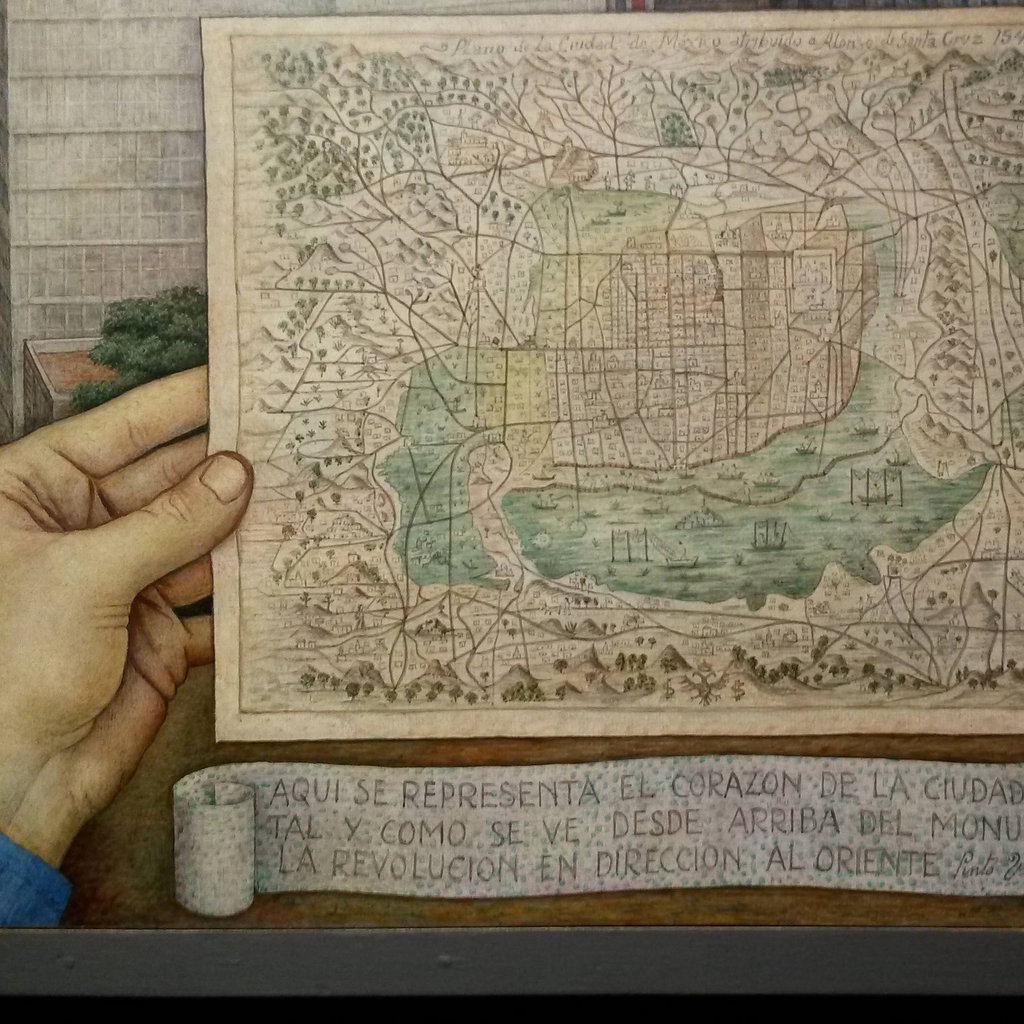 Plano de La Ciudad de México atribuido a Alonso de Santa Cruz 154
AQUI SE REPRESENTA EL CORAZON DE LA CIUDAD
TAL Y COMO SE VE DESDE ARRIBA DEL MONU
LA REVOLUCION EN DIRECCION AL ORIENTE Pinto